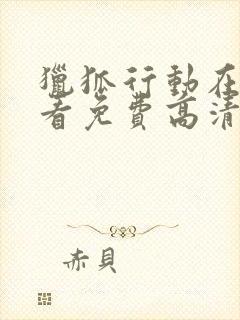 獵狐行動在
看免費高清
赤貝